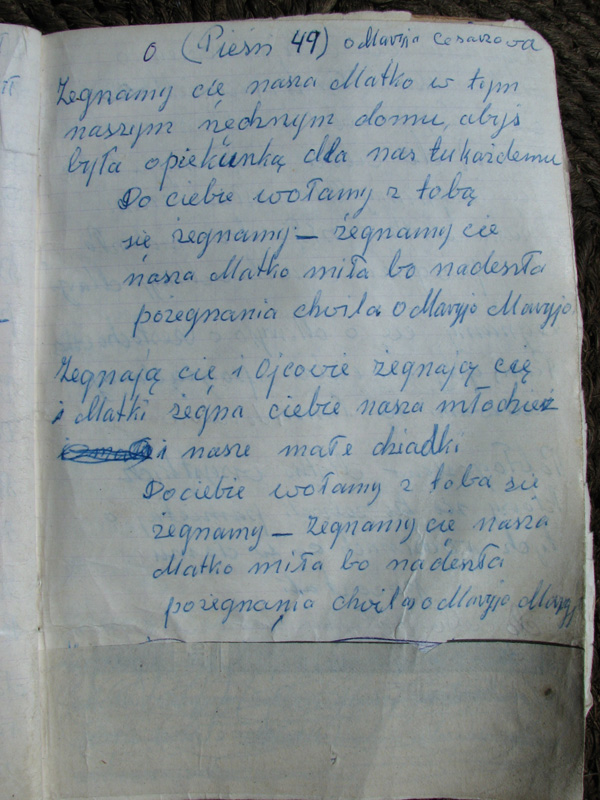 o (Pieśń 49) o Maryja Cesarzowa
Żegnamy cię nasza Matko w tym
naszym
domu, abyś
była opiekunką dla nas tu każdemu
Do ciebie wołamy z tobą
się żegnamy – żegnamy cie
nasza Matko miła bo nadeszła
pożegnania chwila o Maryjo Maryjo
Żegnają cię i Ojcowie żegnają cię
i Matki żegna ciebie nasza młodzież
i nasze małe dziadki
Do ciebie wołamy z toba się
żegnamy – Żegnamy cię nasza
Matko miła bo nadeszła
pożegnania chwila o Maryjo